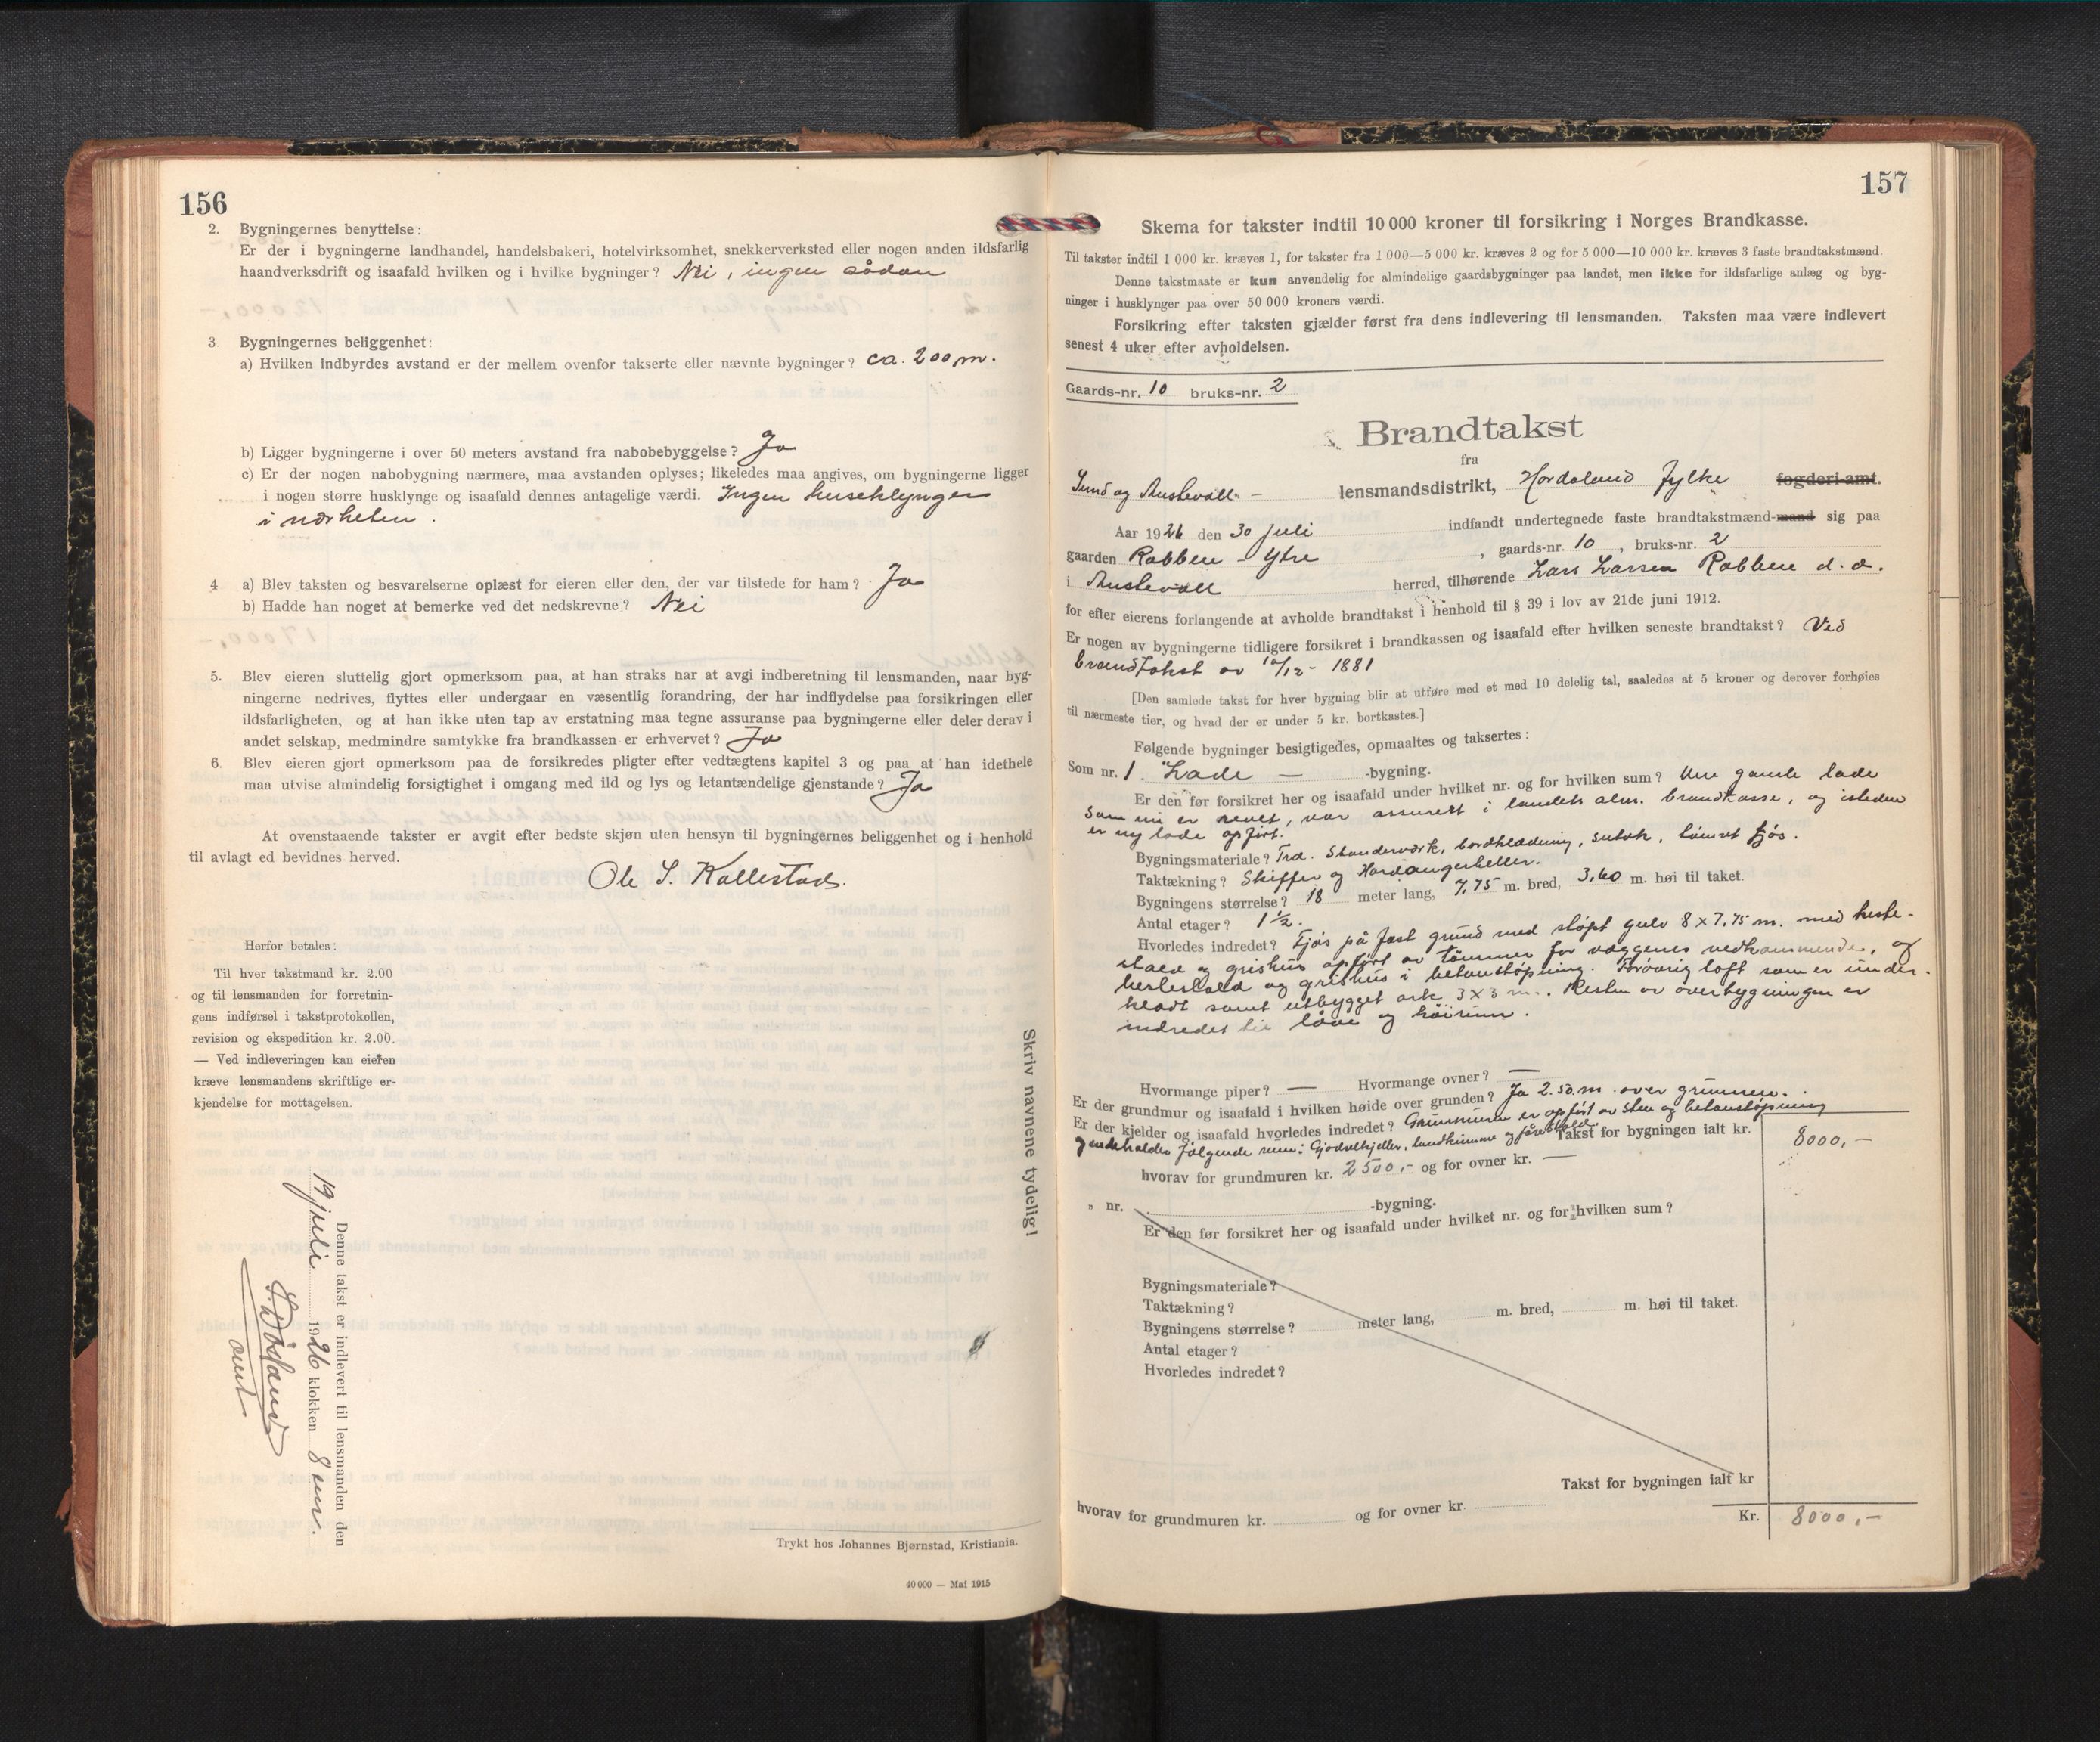 156
2. Bygningernes benyttelse:
Er der i bygningerne landhandel, handelsbakeri, hotelvirksomhet, snekkerverksted eller nogen anden ildsfarlig
haandverksdrift og isaafald hvilken og i hvilke bygninger? Nei, ingen sådan
3. Bygningernes beliggenhet:
a) Hvilken indbyrdes avstand er der mellem ovenfor takserte eller nævnte bygninger? ca. 200 m.
b) Ligger bygningerne i over 50 meters avstand fra nabobebyggelse? Ja
c) Er der nogen nabobygning nærmere, maa avstanden oplyses; likeledes maa angives, om bygningerne ligger
i nogen større husklynge og isaafald dennes antagelige værdi. Ingen huseklynger
i nærheten.
4 a) Blev taksten og besvarelserne oplæst for eieren eller den, der var tilstede for ham? Ja
b) Hadde han noget at bemerke ved det nedskrevne? Nei
5. Blev eieren sluttelig gjort opmerksom paa, at han straks har at avgi indberetning til lensmanden, naar byg-
ningerne nedrives, flyttes eller undergaar en væsentlig forandring, der har indflydelse paa forsikringen eller
ildsfarligheten, og at han ikke uten tap av erstatning maa tegne assuranse paa bygningerne eller deler derav i
andet selskap, medmindre samtykke fra brandkassen er erhvervet? Ja
6. Blev eieren gjort opmerksom paa de forsikredes pligter efter vedtægtens kapitel 3 og paa at han idethele
maa utvise almindelig forsigtighet i omgang med ild og lys og letantændelige gjenstande? Ja
At ovenstaaende takster er avgit efter bedste skjøn uten hensyn til bygningernes beliggenhet og i henhold
til avlagt ed bevidnes herved.
Ole S. Kallestad.
Herfor betales:
Til hver takstmand kr. 2.00
og til lensmanden for forretnin-
gens indførsel i takstprotokollen,
revision og ekspedition kr. 2.00.
— Ved indleveringen kan eieren
kræve lensmandens skriftlige er-
kjendelse for mottagelsen.
Skriv navnene tydelig!
Denne takst er indlevert til lensmanden den
19 juli 1926 klokken 8 em.
Trykt hos Johannes Bjørnstad, Kristiania.
40 000 — Mai 1915
157
Skema for takster indtil 10 000 kroner til forsikring i Norges Brandkasse.
Til takster indtil 1 000 kr. kræves 1, for takster fra 1 000—5 000 kr. kræves 2 og for 5 000—10 000 kr. kræves 3 faste brandtakstmænd.
Denne takstmaate er kun anvendelig for almindelige gaardsbygninger paa landet, men ikke for ildsfarlige anlæg og byg-
ninger i husklynger paa over 50 000 kroners værdi.
Forsikring efter taksten gjælder først fra dens indlevering til lensmanden. Taksten maa være indlevert
senest 4 uker efter avholdelsen.
Gaards-nr. 10 bruks-nr. 2
Brandtakst
fra
Sund og Austevoll lensmandsdistrikt, Hordaland fylke fogderi-amt.
Aar 1926 den 30 juli indfandt undertegnede faste brandtakstmænd-mand sig paa
gaarden Rabben - Ytre, gaards-nr. 10, bruks-nr. 2
i Austevoll herred, tilhørende Lars Larsen Rabben d. e.
for efter eierens forlangende at avholde brandtakst i henhold til § 39 i lov av 21de juni 1912.
Er nogen av bygningerne tidligere forsikret i brandkassen og isaafald efter hvilken seneste brandtakst? Ved
brandtakst av 10/12 - 1881
[Den samlede takst for hver bygning blir at utføre med et med 10 delelig tal, saaledes at 5 kroner og derover forhøies
til nærmeste tier, og hvad der er under 5 kr. bortkastes.]
Følgende bygninger besigtigedes, opmaaltes og taksertes:
Som nr. 1. Lade — -bygning.
Er den før forsikret her og isaafald under hvilket nr. og for hvilken sum? gamle lade
som nu er revet, var assurert i landets alm. brandkasse, og isteden
er ny lade opført.
Bygningsmateriale? Træ. Standerværk, bordklædning, sutak, tømret fjøs.
Taktækning? Skiffer og Hardangerheller.
Bygningens størrelse? 18 meter lang, 7,75 m. bred, 3,60 m. høi til taket.
Antal etager? 1 ½.
Hvorledes indredet? Fjøs på fast grund med støpt gulv 8 x 7,75 m. med heste-
stald og grishus opført av tømmer for væggenes vedkommende, og
hestestald og grishus i betonstøpning. Forøvrig loft som er under-
klædt samt utbygget ark 3 x 3 m. Resten av overbygningen er
indredet til låve og høirum.
Hvormange piper? — Hvormange ovner? —
Er der grundmur og isaafald i hvilken høide over grunden? Ja 2.50 m. over grunnen.
Er der kjelder og isaafald hvorledes indredet? Grunnmuren er opført av sten og betonstøpning
og indeholder følgende rum: Gjødselkjeller, landkumme og fårestald
Takst for bygningen ialt kr. 8000,-
hvorav for grundmuren kr. 2500,- og for ovner kr. —
„ nr. -bygning.
Er den før forsikret her og isaafald under hvilket nr. og for hvilken sum?
Bygningsmateriale?
Taktækning?
Bygningens størrelse? meter lang, m. bred, m. høi til taket.
Antal etager?
Hvorledes indredet?
Takst for bygningen ialt kr
hvorav for grundmuren kr. og for ovner kr.
Kr. 8000,-